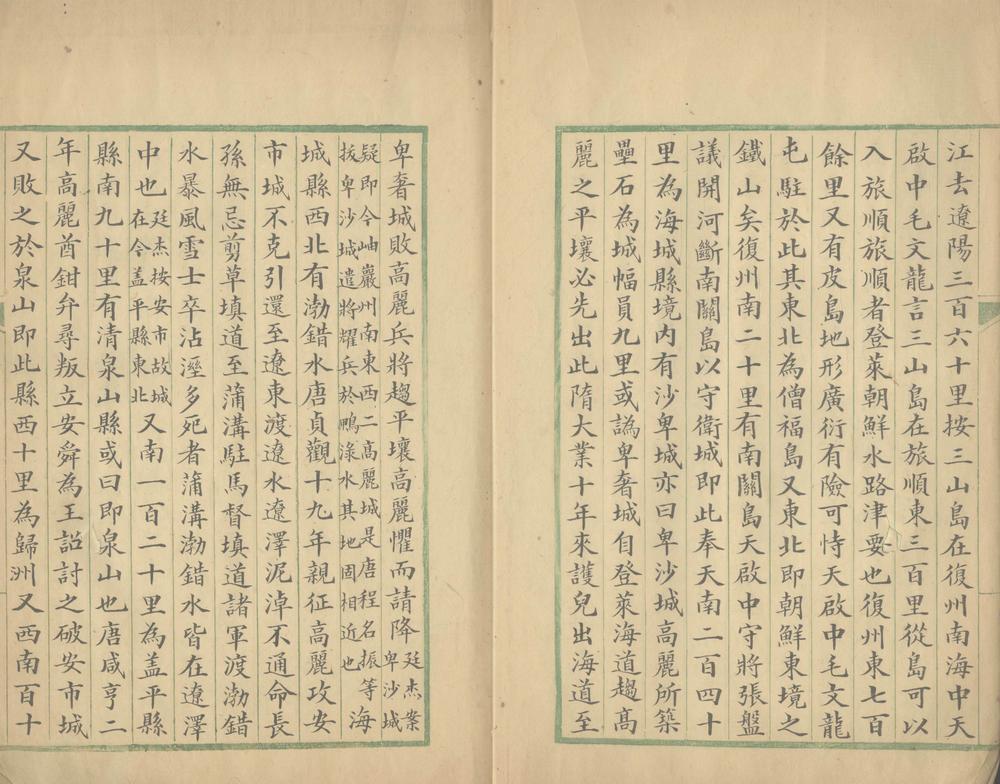 江去遼陽三百六十里按三山島在復州南海中天
啟中毛文龍言三山島在旅順東三百里從島可以
入旅順旅順者登萊朝鮮水路津要也復州東七百
餘里又有皮島地形廣衍有險可恃天啟中毛文龍
屯駐於此其東北為僧福島又東北即朝鮮東境之
鐵山矣復州南二十里有南關島天啟中守將張盤
議開河斷南關島以守衛城即此奉天南二百四十
里為海城縣境内有沙卑城亦曰卑沙城高麗所築
壘石為城幅員九里或譌卑奢城自登萊海道趨髙
麗之平壤必先出此隋大業十年來護兒出海道至
卑奢城敗高麗兵將趨平壤高麗懼而請降廷杰案卑沙城
疑即今岫巖州南東西二高麗城是唐程名振等
拔卑沙城遣將耀兵於鴨淥水其地固相近也海
城縣西北有渤錯水唐貞觀十九年親征高麗攻安
市城不克引還至遼東渡遼水遼澤泥淖不通命長
孫無忌剪草填道至蒲溝駐馬督填道諸軍渡渤錯
水暴風雪士卒沾溼多死者蒲溝渤錯水皆在遼澤
中也廷杰按安市故城在今盖平縣東北又南一百二十里為盖平縣
縣南九十里有清泉山縣或曰即泉山也唐咸亨二
年高麗酋鉗弁尋叛立安舜為王詔討之破安市城
又敗之於泉山即此縣西十里為歸洲又西南百十